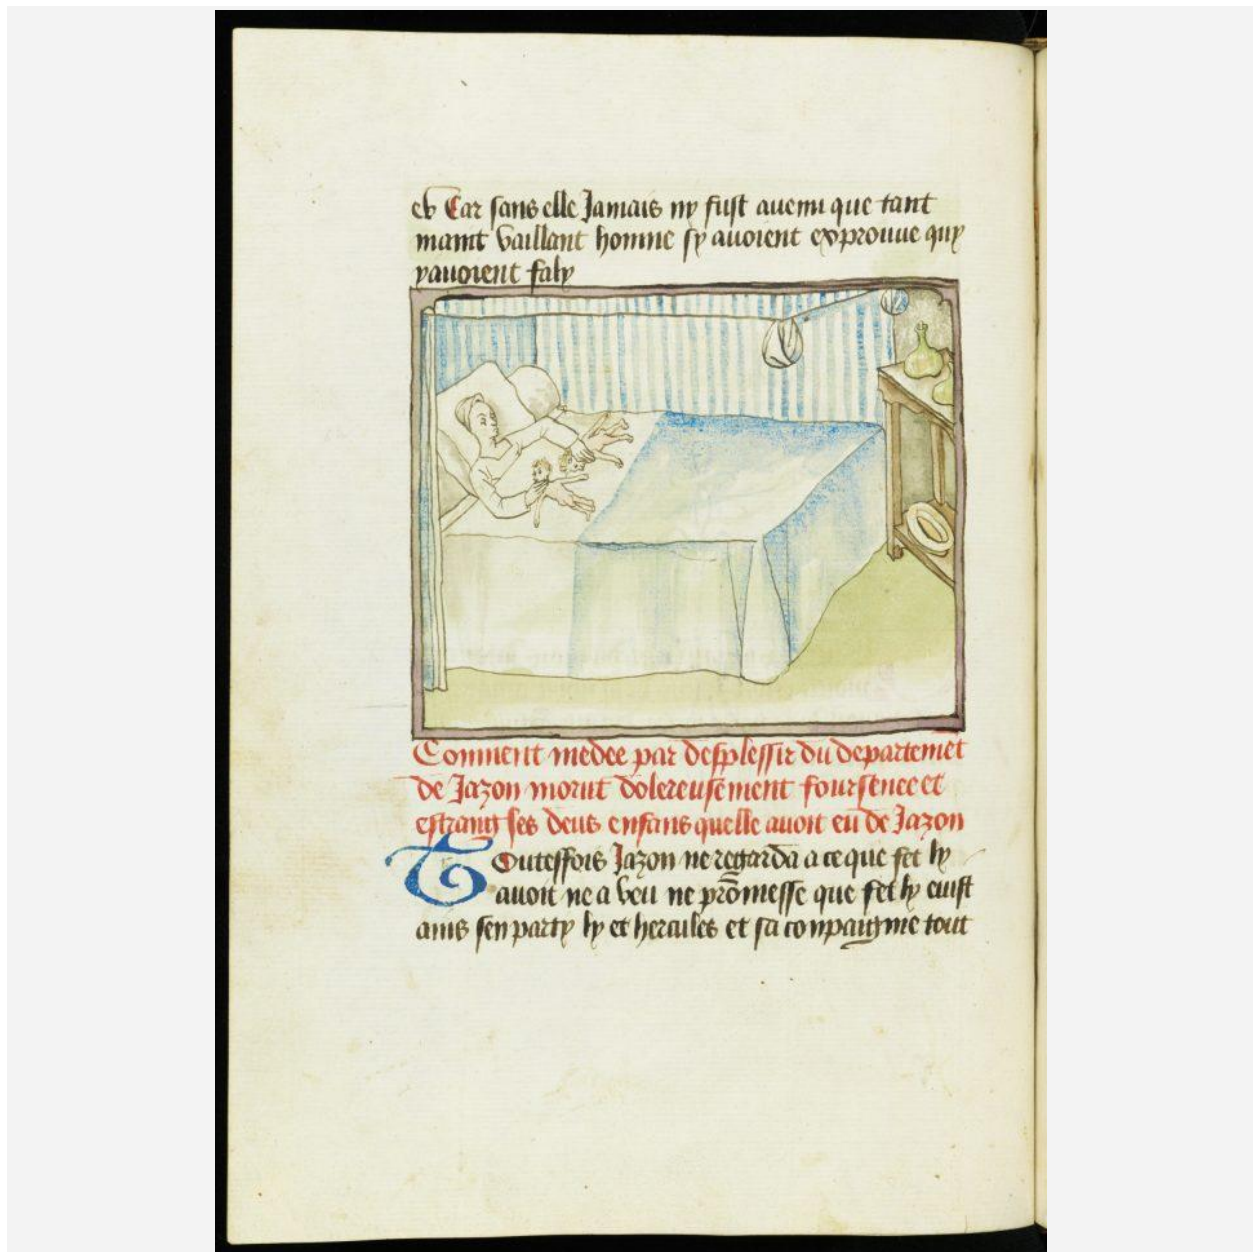 et Car sans elle Jamais ny fust auenu que tant
maint vaillant homme sy auoient exprouue quy
y auoient faly
Comment medee par desplessir du departemēt
de Jazon morut dolereusement foursenee et
estrang ses deus enfans quelle auoit eu de Jazon
Toutesfois Jazon ne regarda a ce que fet ly
auoit ne a veu ne prōmesse que fet ly euist
ains sen party ly et hercules et sa conpaignie tout